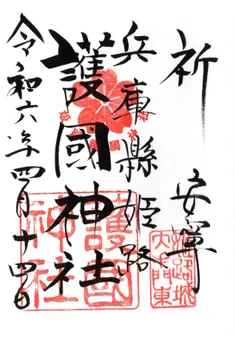 祈 安寧
兵庫縣姫路
護國神社
令和六年四月十四日
護國
神社
姫路城
大門東